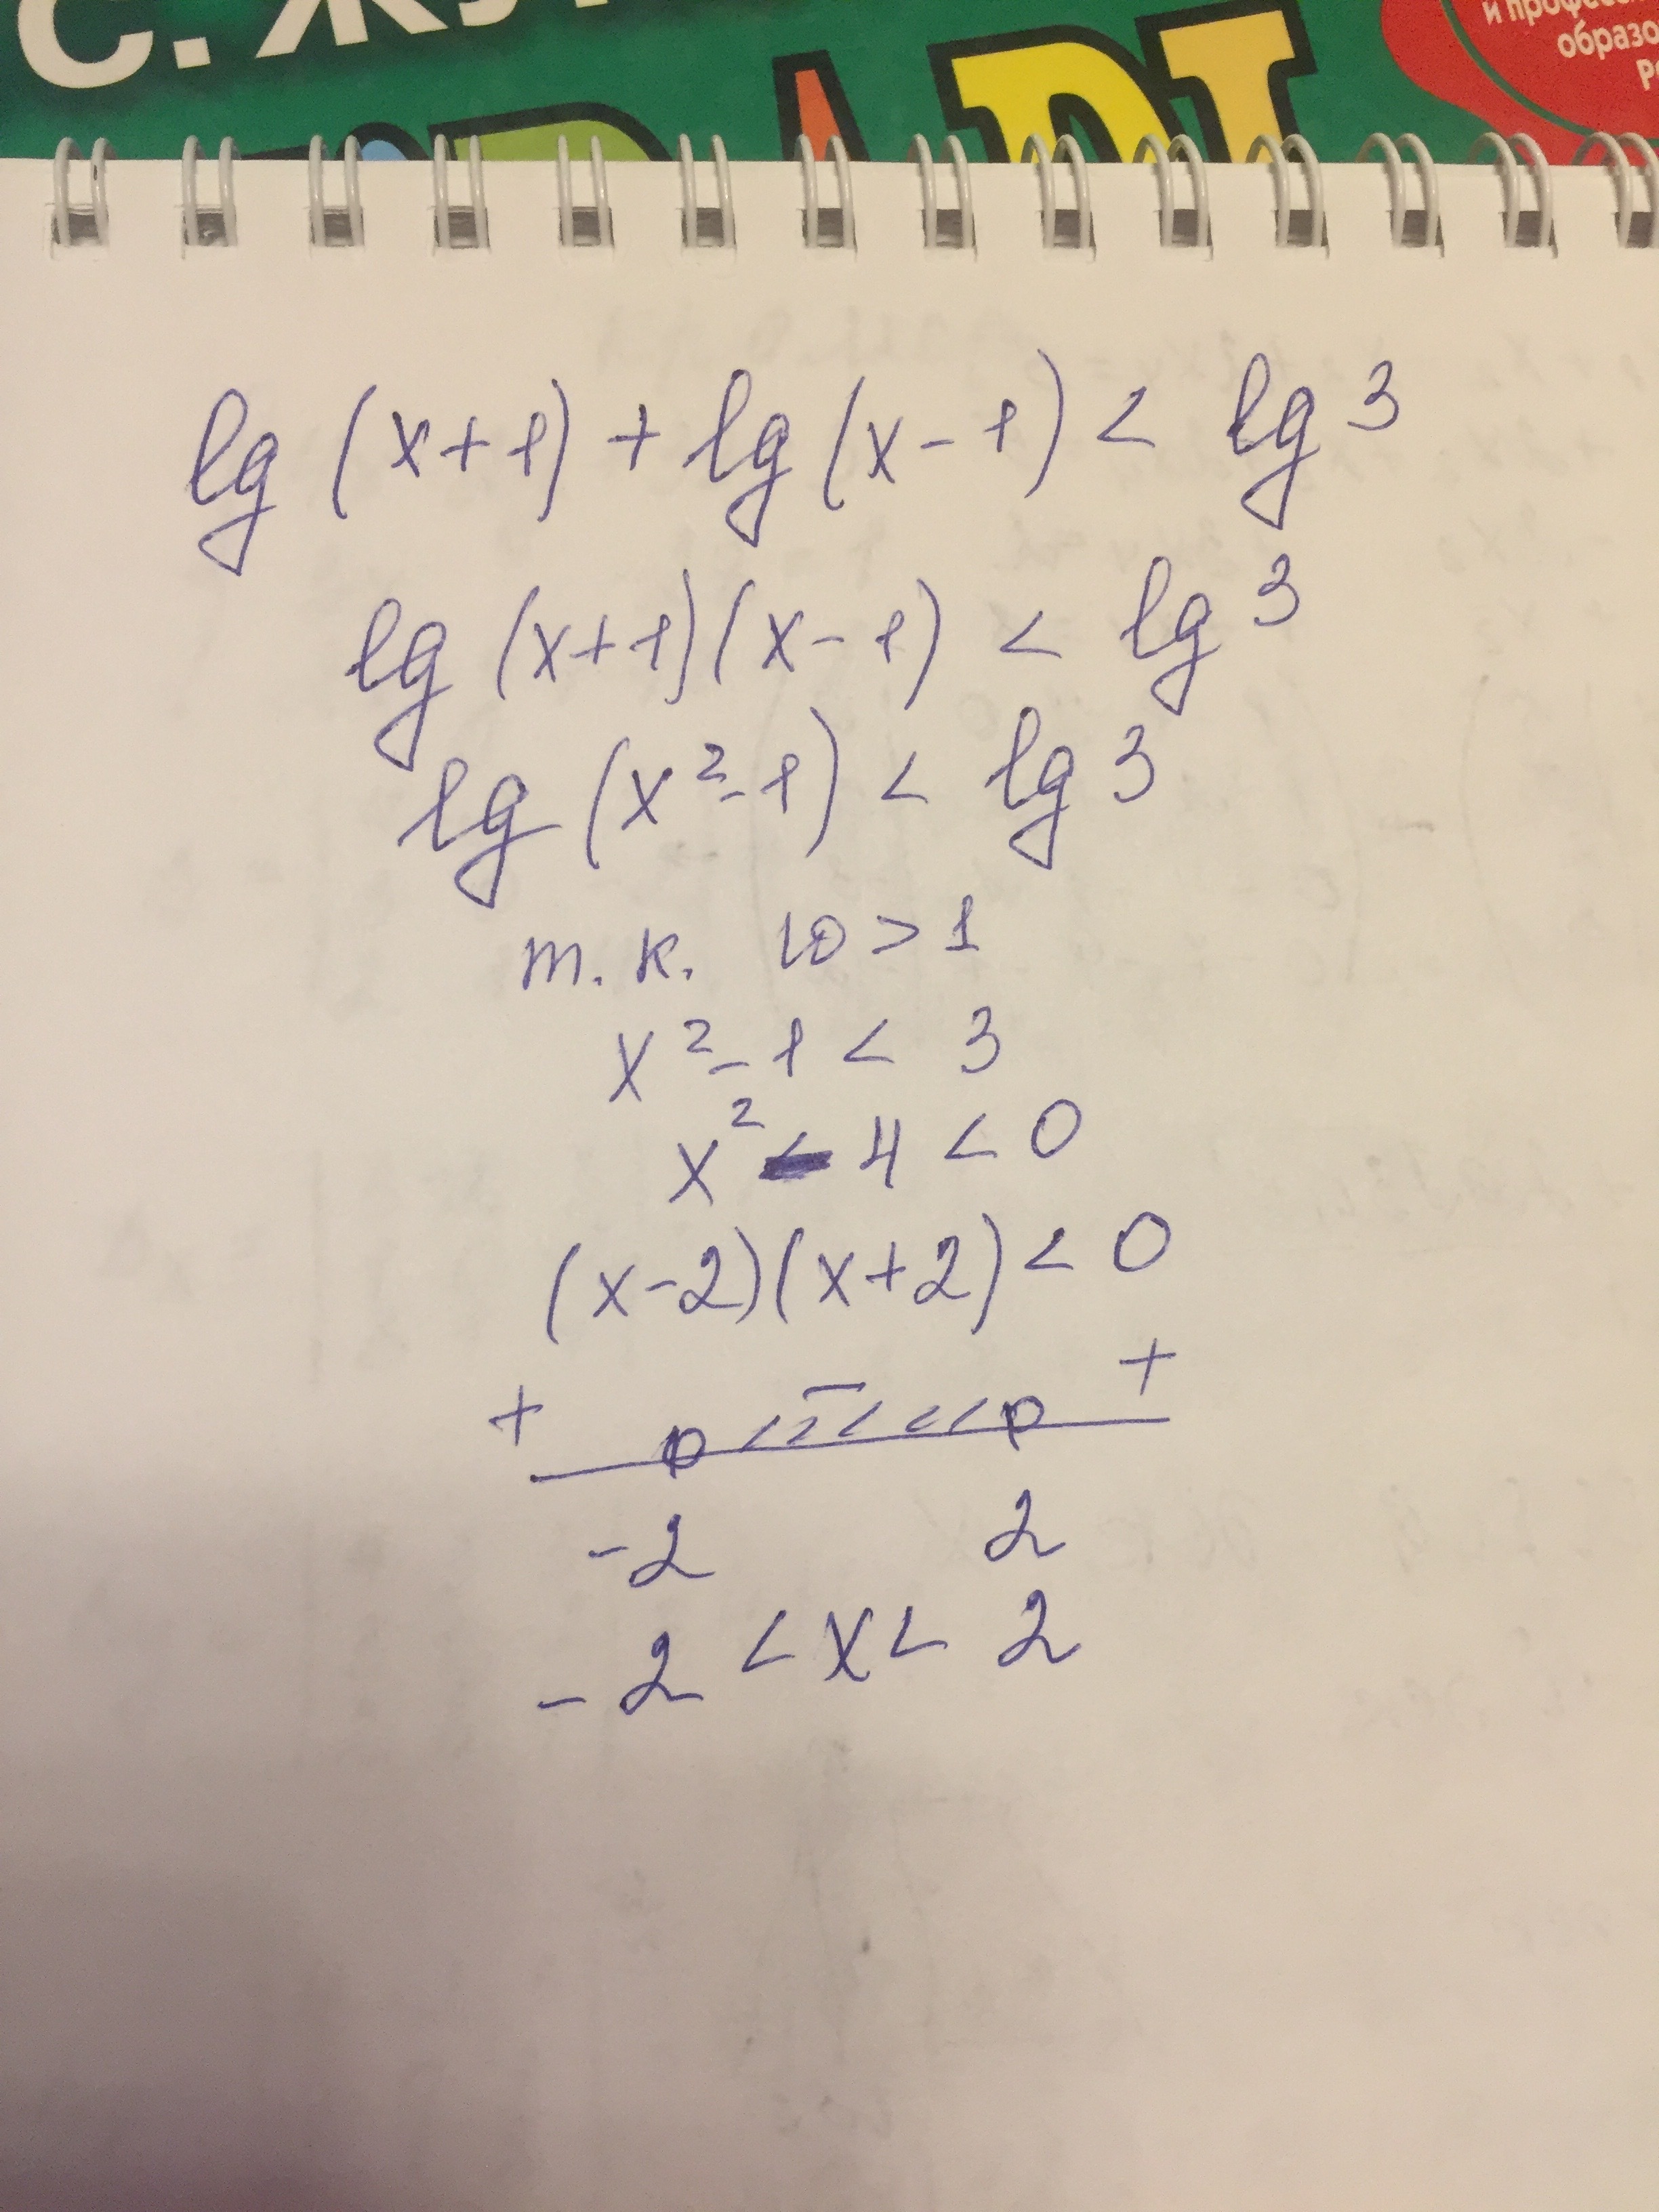 С. ЖУ
и професс
образо
Р
lg (x+1) + lg (x-1) < lg 3
lg (x+1)(x-1) < lg 3
lg (x²-1) < lg 3
т.к. 10 > 1
x²-1 < 3
x² - 4 < 0
(x-2)(x+2) < 0
+ - +
-2 2
-2 < x < 2